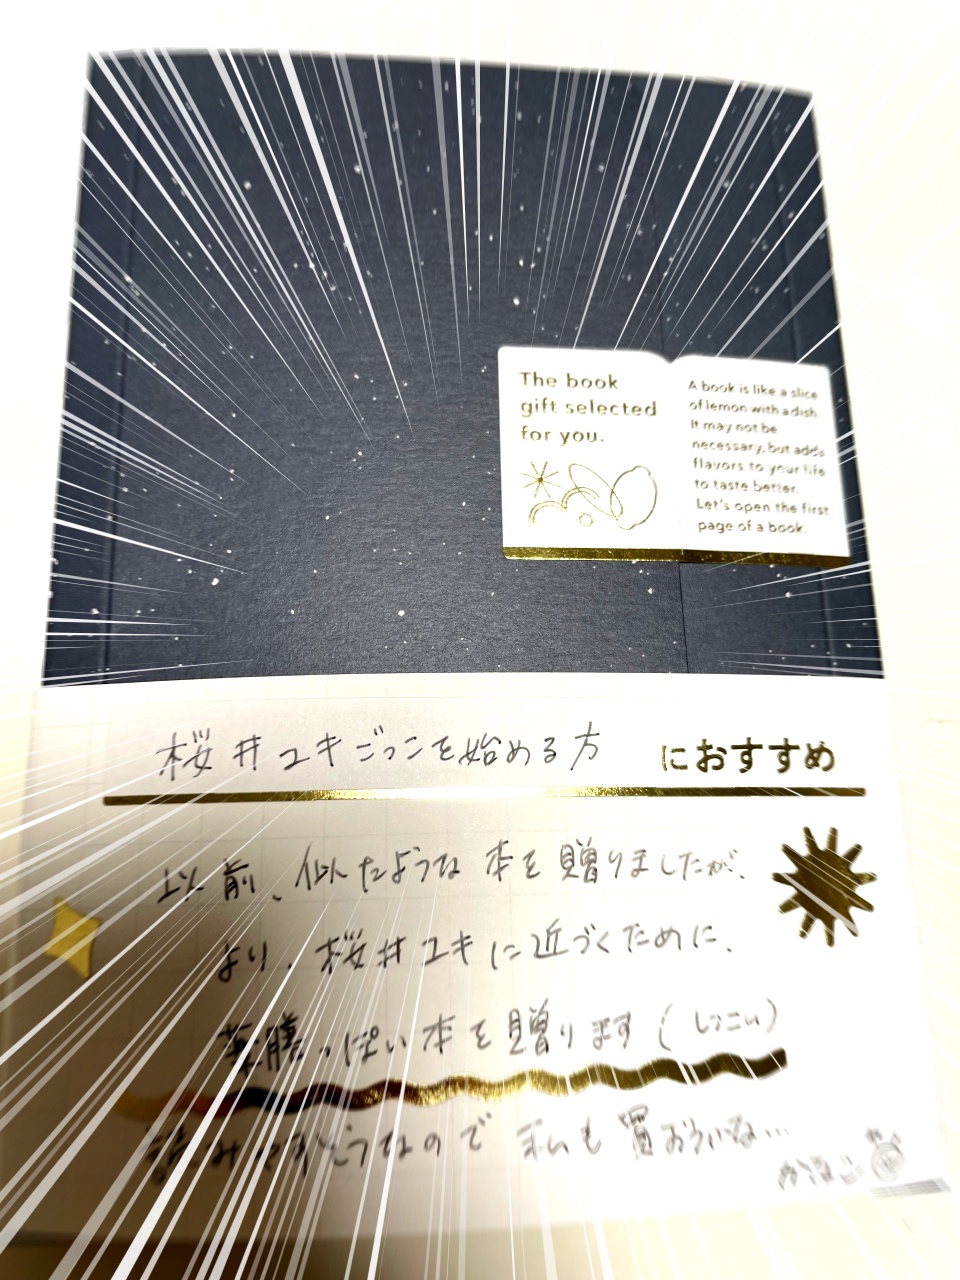 The book
gift selected
for you.
A book is like a slice
of lemon with a dish.
It may not be
necessary, but adds
flavors to your life
to taste better.
Let's open the first
page of a book.
桜井ユキごっこを始める方 におすすめ
以前、似たような本を贈りましたが、
より、桜井ユキに近づくために、
薬膳っぽい本を贈ります(しつこい)
読みやすそうなので私も買おうかな…